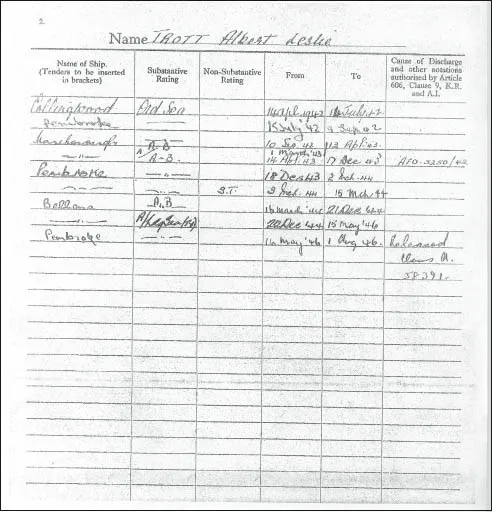 2.
Name TROTT Albert Leslie
Name of Ship. (Tenders to be inserted in brackets) Substantive Rating Non-Substantive Rating From To Cause of Discharge and other notations authorised by Article 606, Clause 9, K.R. and A.I.
Collingwood Ord Sea 1942 July 42
Pembroke —"— 15 July '42 9 Sep 42
10 Sep. 42 Apr. 43
A.B 1 March '43
—"— A.B. 14 Apr. 43 17 Dec 43 AFO 3250/42
Pembroke —"— 18 Dec 43 2 Feb. 44
—"— —"— S.T. 3 Feb. 44 15 Mch 44
A.B. 16 March '44 21 Dec '44
22 Dec 44 15 May '46
Pembroke —"— 16 May '46 1 Aug 46. Released
Class A.
58391.